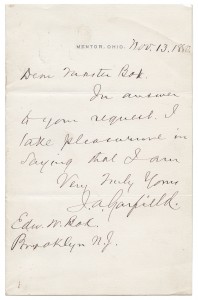 MENTOR, OHIO. Nov. 13, 1880
Dear Master Bok.
In answer
to your request. I
take pleasure in
saying that I am
Very Truly Yours
J. A. Garfield.
Edw. W. Bok
Brooklyn N.Y.